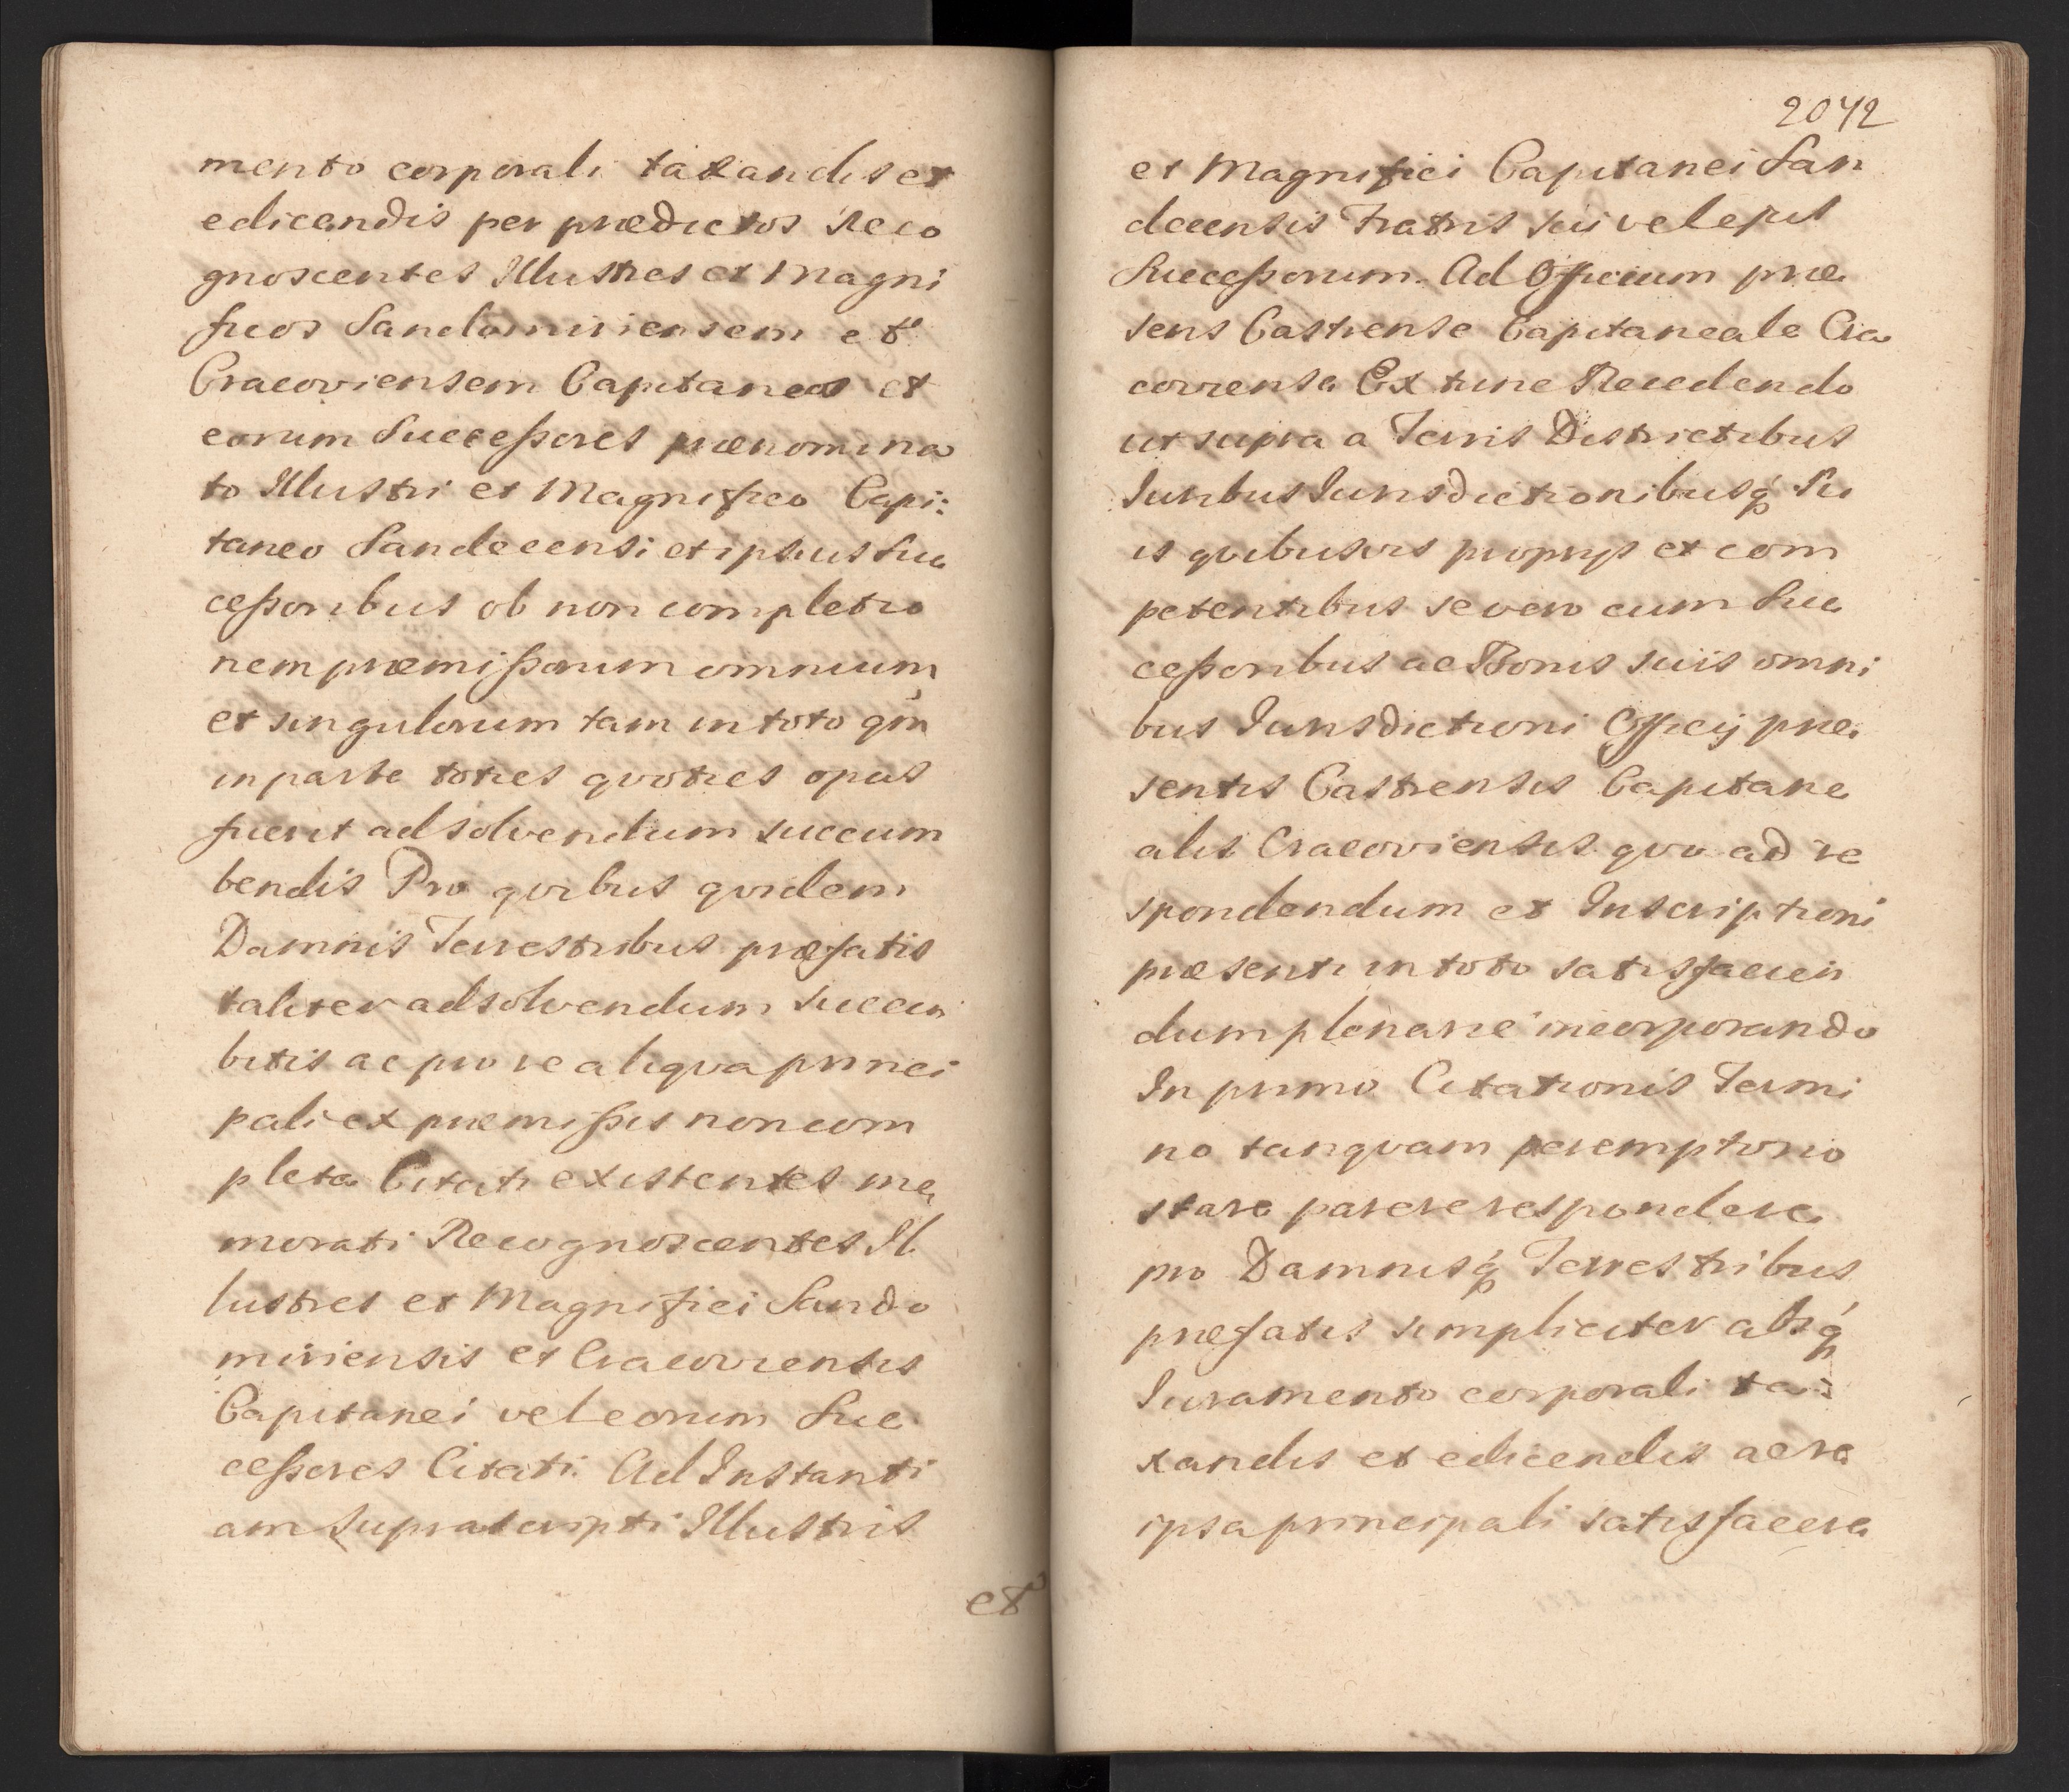 mento corporali taxandis et
edicendis per prædictos Reco
gnoscentes Illustres et Magni
ficos Sandomiriensem et
Cracoviensem Capitaneos et
eorum Successores prænomina
to Illustri et Magnifico Capi:
taneo Sandecensi et ipsius Suc
cessoribus ob non completio
nem præmissorum omnium
et singulorum tam in toto qm
in parte toties qvoties opus
fuerit ad solvendum succum
bendis Pro qvibus qvidem
Damnis Terrestribus præfatis
taliter ad solvendum succum
bitis ac pro re aliqva princi
pali ex præmissis non com
pleta Citati existentes me
morati Recognoscentes Il
lustres et Magnifici Sando
miriensis et Cracoviensis
Capitanei vel eorum Suc
cessores Citati. Ad Instanti
am Suprascripti Illustris
et
2042
et Magnifici Capitanei San
decensis Fratris sui vel ejus
Successorum. Ad Officium præ
sens Castrense Capitaneale Cra
coviense Ex tunc Recedendo
ut supra a Terris Districtibus
Iuribus Iurisdictionibusq́ Su
is qvibusvis proprijs et com
petentibus se vero cum Suc
cessoribus ac Bonis suis omni
bus Iurisdictioni Officij præ
sentis Castrensis Capitane
alis Cracoviensis qvo ad re
spondendum et Inscriptioni
præsenti in toto satisfacien
dum plenarie incorporando
In primo Citationis Termi
no tanqvam peremptorio
stare parere respondere
pro Damnisq́ Terrestribus
præfatis simpliciter absq́
Iuramento corporali ta:
xandis et edicendis ac re
ipsa principali satisfacere